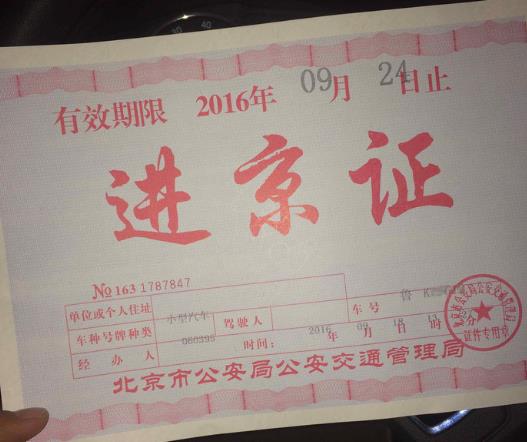 有效期限 2016年 09月 24日止
进京证
№ 163 1787847
单位或个人住址
车种号牌种类 小型汽车 驾驶人 车号 鲁 K
经办人 060395 时间: 2016 年 09 月 18 日 分
北京市公安局公安交通管理局
证件专用章